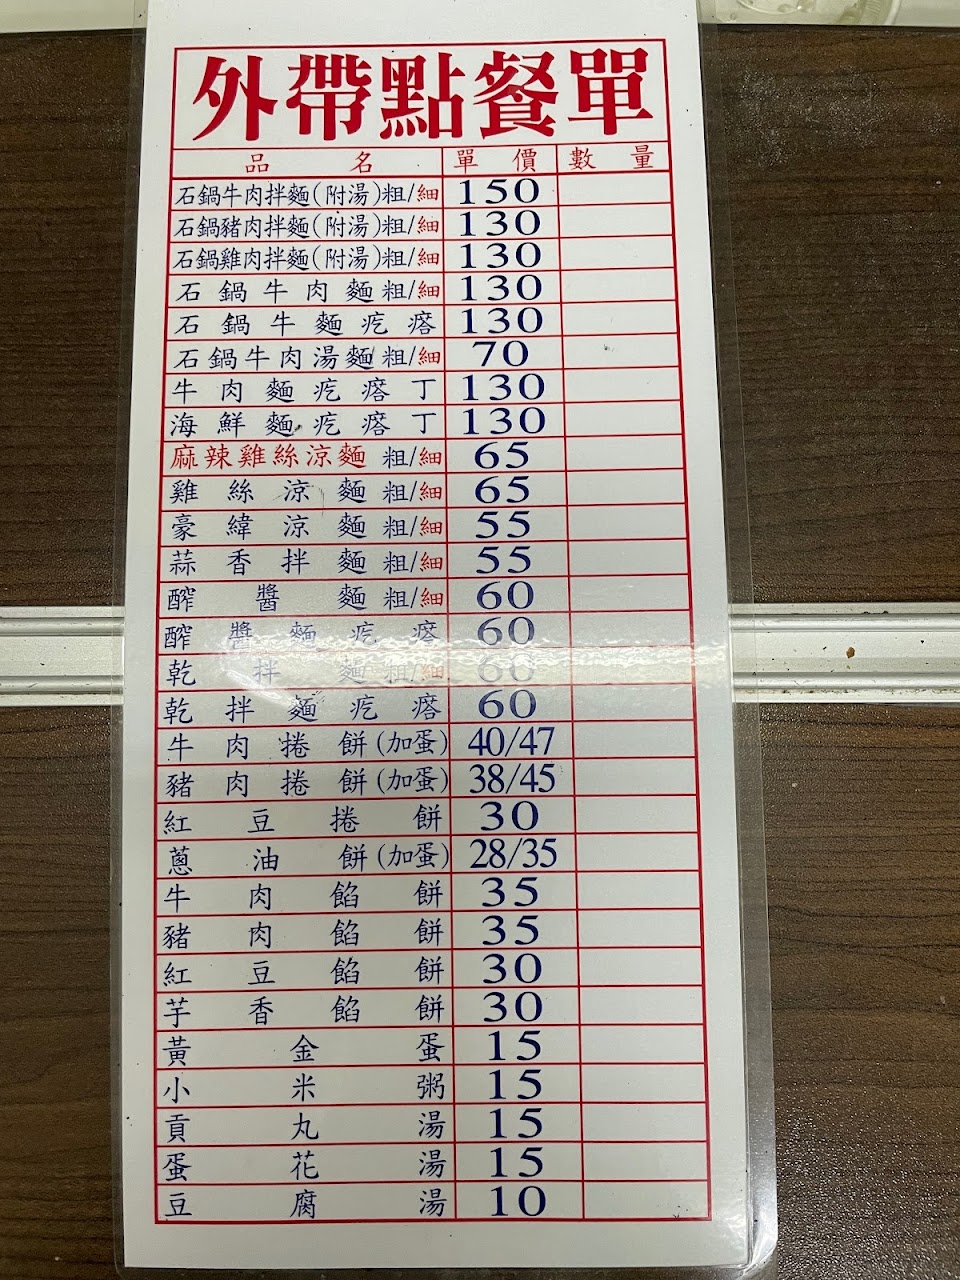 外帶點餐單
品名 單價 數量
石鍋牛肉拌麵(附湯)粗/細 150
石鍋豬肉拌麵(附湯)粗/細 130
石鍋雞肉拌麵(附湯)粗/細 130
石鍋牛肉麵粗/細 130
石鍋牛麵疙瘩 130
石鍋牛肉湯麵粗/細 70
牛肉麵疙瘩丁 130
海鮮麵疙瘩丁 130
麻辣雞絲涼麵 粗/細 65
雞絲涼麵粗/細 65
豪緯涼麵粗/細 55
蒜香拌麵粗/細 55
醡醬麵粗/細 60
醡醬麵疙瘩 60
乾拌麵粗/細 60
乾拌麵疙瘩 60
牛肉捲餅(加蛋) 40/47
豬肉捲餅(加蛋) 38/45
紅豆捲餅 30
蔥油餅(加蛋) 28/35
牛肉餡餅 35
豬肉餡餅 35
紅豆餡餅 30
芋香餡餅 30
黃金蛋 15
小米粥 15
貢丸湯 15
蛋花湯 15
豆腐湯 10